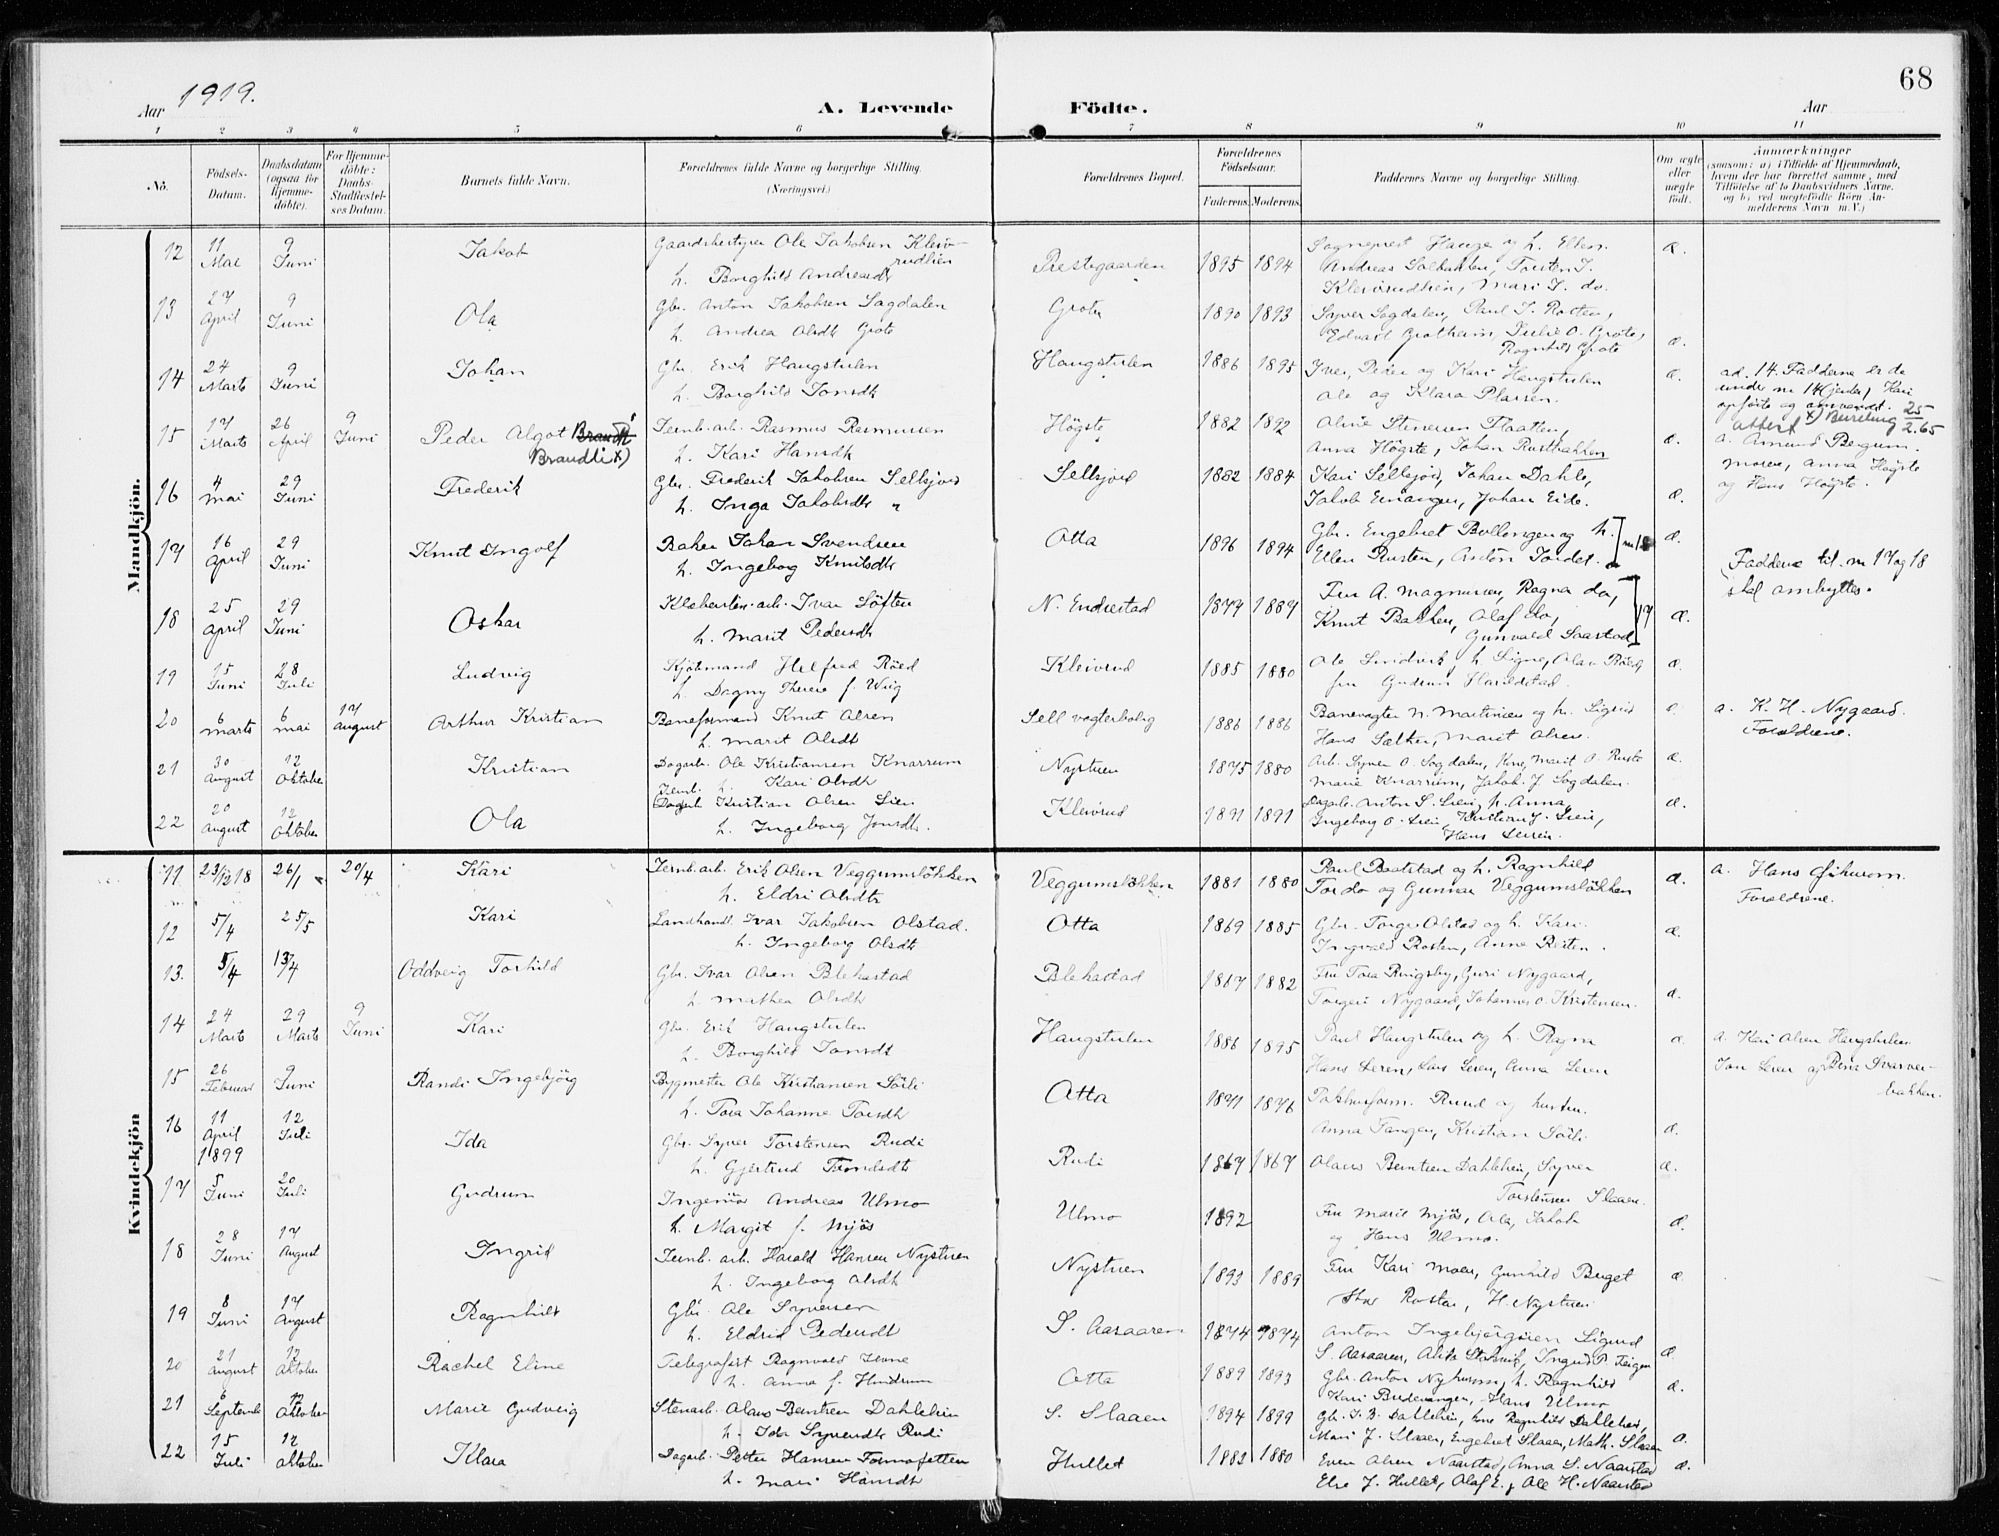 68
Aar 1919.
A. Levende Födte.
Aar
1 2 3 4 5 6 7 8 9 10 11
No.
Födsels-Datum.
Daabsdatum (ogsaa for Hjemme-döbte).
For Hjemme-döbte: Daabs-Stadfæstel-ses Datum.
Barnets fulde Navn.
Forældrenes fulde Navne og borgerlige Stilling. (Næringsvei.)
Forældrenes Bopæl.
Forældrenes Födselsaar.
Faderens. Moderens.
Faddernes Navne og borgerlige Stilling.
Om ægte eller uægte födt.
Anmærkninger (saasom: a) i Tilfælde af Hjemmedaab, hvem der har forrettet samme, med Tilföielse af to Daabsvidners Navne, og b) ved uægtefödte Börn Anmelderens Navn m.V.)
Mandkjön.
12 11 Mai 9 Juni Jakob Gaardsbestyrer Ole Jakobsen Kleiv-rudlien
h. Borghild Andreasdt. Prestegaarden 1895 1894 Sogneprest Hauge og h. Ellen
Andreas Solbakken, Torsten J.
Kleivrudlien, Mari J. do. æ.
13 27 April 9 Juni Ola Gbr. Anton Jakobsen Sagdalen
h. Andrea Olsdt Grote Grote 1890 1893 Syver Sagdalen, Paul J. Rosten,
Edvart Grotheim, Julie O. Grote,
Ragnhild Grote æ.
14 24 Marts 9 Juni Johan Gbr. Erik Haugstulen
h. Borghild Jonsdt Haugstulen 1886 1895 Iver, Peder og Kari Haugstulen
Ole og Klara Plassen. æ.
ad. 14. Fadderne er de
under nr 14 (jenter) Kari
opførte og omvendt.
15 17 Marts 26 April 9 Juni Peder Algot Brandt
Brandli x) Jernb. arb. Rasmus Rasmussen
h. Kari Hansdt Högste 1882 1892 Aline Stenersen Flaatten,
Anna Högste, Johan Rustbakken æ.
attest x) Bevilling 25/2.65
a. Amund Bergum.
moren, Anna Högste
og Hans Högste.
16 4 mai 29 Juni Frederik Gbr. Frederik Jakobsen Selsjord
h. Inga Jakobsdt " Selsjord 1882 1884 Kari Selsjord, Johan Dahle,
Jakob Einangen, Johan Eide. æ.
17 16 April 29 Juni Knut Ingolf Baker Johan Svendsen
h. Ingeborg Knutsdt Otta 1896 1894 Gbr. Engebret Bollongen og h.
Ellen Rusten, Anton Tordet. nr 18 æ.
Fadderne til nr 17 og 18
skal ombyttes.
18 25 April 29 Juni Oskar Klebersten. arb. Ivar Söften
h. Marit Pedersdt N. Endrestad 1877 1887 Fru A. Magnussen, Ragna do,
Knut Bakken, Olaf do,
Gunvald Saastad 17 æ.
19 15 Juni 28 Juli Ludvig Kjötmand Helfred Röed
h. Dagny Therese f. Wiig Kleivrud 1885 1880 Ole Sindvik, h. Signe, Olav Röed,
fru Gudrun Harildstad. æ.
20 6 marts 6 mai 17 August Arthur Kristian Baneformand Knut Olsen
h. Marit Olsdt Sell vogterbolig 1886 1886 Banevogter N. Martinsen og h. Sigrid
Hans Sæther, Marit Olsen. æ
a. K. H. Nygaard.
Forældrene.
21 30 August 12 Oktober Kristian Dagarb. Ole Kristiansen Knarrum
h. Kari Olsdt Nystuen 1875 1880 Arb. Syver O. Sogdalen, Kone Marit O. Rusto
Marie Knarrum, Jakob J. Sogdalen. æ.
22 20 August 12 Oktober Ola Jernb. Dagarb. Kristian Olsen Lien
h. Ingeborg Jonsdt. Kleivrud 1891 1891 Dagarb. Anton S. Lien, h. Anna,
Ingeborg O. Lien, Kristian J. Lien,
Hans Leiren. æ.
Kvindekjön
11 23/12 18 26/1 20/4 Kari Jernb. arb. Erik Olsen Veggumslökken
h. Eldri Olsdt Veggumslökken 1881 1880 Paul Baatstad og h. Ragnhild
Tor do og Gunnar Veggumslökken æ.
a. Hans Öihusom.
Forældrene.
12 5/4 25/5 Kari Landhandl. Ivar Jakobsen Olstad.
h. Ingeborg Olsdt Otta 1869 1885 Gbr. Torger Olstad og h. Kari.
Ingvald Rosten, Anne Reiten. æ.
13. 5/4 13/4 Oddveig Torhild Gbr. Ivar Olsen Blekastad
h. Mathea Olsdt Blekastad 1867 1882 Fru Tora Ringsby, Guri Nygaard,
Torgeir Nygaard, Johannes O. Kristensen. æ.
14 24 Marts 29 Marts 9 Juni Kari Gbr. Erik Haugstulen
h. Borghild Jonsdt Haugstulen 1886 1895 Paul Haugstulen og h. Ragna
Hans Leren, Lars Leren, Anna Leren æ
a. Kari Olsen Haugstulen
Jon Leren og Berit Svarver-
bakken.
15 26 Februar 9 Juni Randi Ingebjörg Bygmester Ole Kristiansen Sörli
h. Tora Johanne Torsdt Otta 1871 1876 Pakhusform. Ruud og hustru.
Anna Fangen, Kristian Sörli. æ.
16 11 April 1899 12 Juli Ida Gbr. Syver Torstensen Rudi
h. Gjertrud Trondsdt Rudi 1867 1867 Olaus Berntsen Dahlehien, Syver
Torstensen Slaaen. æ.
17 5 Juni 20 Juli Gudrun Ingeniör Andreas Ulmo
h. Margit f. Mjös Ulmo 1892 Fru Marit Mjös, Ole, Jakob
og Hans Ulmo. æ.
18 28 Juni 17 August Ingrid Jernb. arb. Harald Hansen Nystuen
h. Ingeborg Olsdt Nystuen 1893 1889 Fru Kari Moen, Gunhild Buget
Ther Rosten, H. Nystuen. æ.
19 8 Juni 17 August Ragnhild Gbr. Ole Syversen
h. Eldrid Pedersdt S. Aasaaren 1874 1874 Anton Ingebjörgsen Sigurd
S. Aasaaren, Alida Stokvik, Ingrid P. Teigen æ.
20 21 August 12 Oktober Rachel Eline Telegrafist Ragnvald
h. Anna f. Hundrum Otta 1889 1893 Gbr. Anton Nyhusom, h. Ragnhild
Kari Budevangen, Hans Ulmo æ.
21 6 Septemb 12 Oktober Marie Gudveig Stenarb. Olaus Berntsen Dahlehien
h. Ida Syversdt Rudi S. Slaaen 1894 1899 Gbr. J. B. Dahlehien, kone Ragnhild Dahlehien,
Mari J. Slaaen, Engebret Slaaen, Math. Slaaen æ.
22 15 Juli 12 Oktober Klara Dagarb. Petter Hansen Formofetten
h. Mari Hansdt Hullet 1883 1880 Even Olsen Naarstad, Anna S. Naarstad
Else J. Hullet, Olaf E. og Ole H. Naarstad æ.